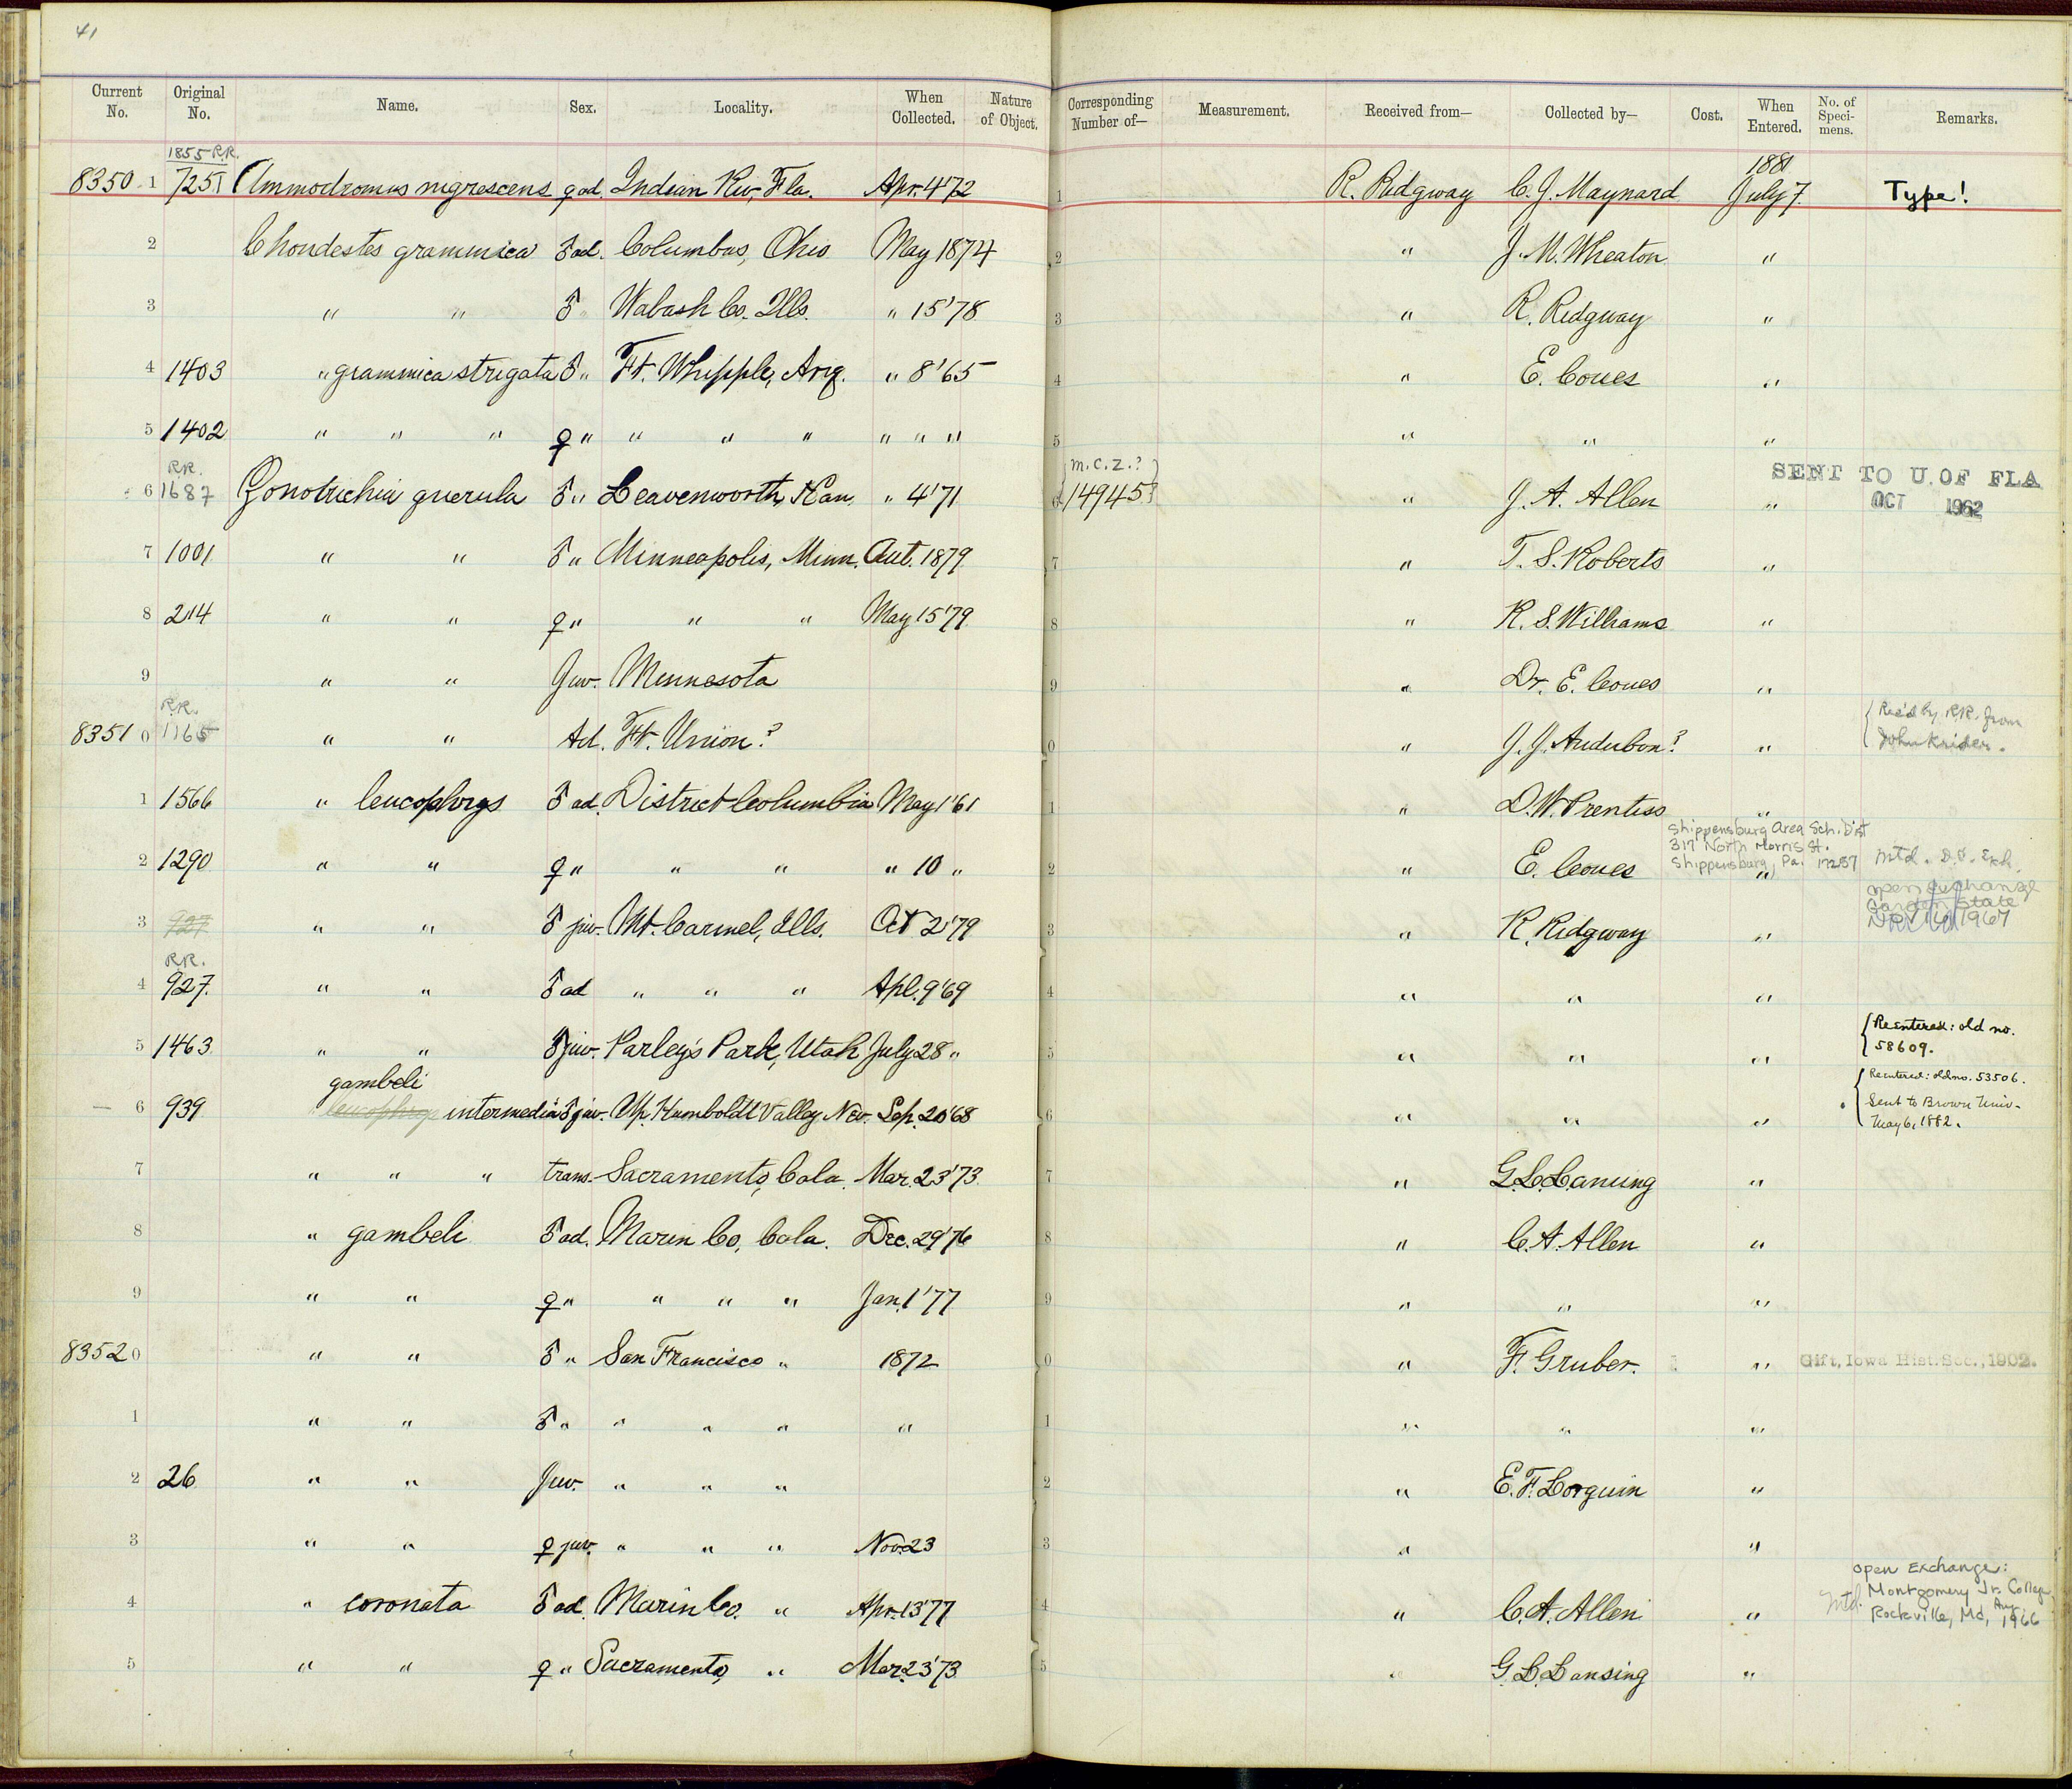 41
Current No. Original No. Name. Sex. Locality. When Collected. Nature of Object. Corresponding Number of— Measurement. Received from— Collected by— Cost. When Entered. No. of Speci- mens. Remarks.
1855 R.R. 1881
8350 1 7251 Ammodromus nigrescens ♀ ad. Indian Riv, Fla. Apr. 4 '72 1 R. Ridgway C. J. Maynard July 7 Type!
2 Chondestes grammica ♂ ad. Columbus, Ohio May 1874 2 " J. M. Wheaton "
3 " " ♂ " Wabash Co. Ills. " 15 '78 3 " R. Ridgway "
4 1403 " grammica strigata ♂ " Ft. Whipple, Ariz. " 8 '65 4 " E. Coues "
5 1402 " " " ♀ " " " " " " " 5 " " "
R.R. M.C.Z.? SENT TO U. OF FLA
6 1687 Zonotrichia querula ♂ " Leavenworth, Kan. " 4 '71 6 14945? " J. A. Allen " OCT 1962
7 1001 " " ♂ " Minneapolis, Minn. Aut. 1879 7 " T. S. Roberts "
8 214 " " ♀ " " " May 15 '79 8 " R. S. Williams "
9 " " Juv. Minnesota 9 " Dr. E. Coues "
R.R. Rec'd by R.R. from
8351 0 1165 " " Ad. Ft. Union? 0 " J. J. Audubon? " John Krider.
1 1566 " leucophrys ♂ ad. District Columbia May 1 '61 1 " D. W. Prentiss "
Shippensburg Area Sch. Dist
317 North Morris St.
Shippensburg, Pa. 17257
2 1290 " " ♀ " " " " 10 " 2 " E. Coues " Mtd. D.C. Exh.
open exchange
Garden State
1967
3 927 " " ♂ juv. Mt. Carmel, Ills. Oct 2 '79 3 " R. Ridgway "
R.R.
4 927. " " ♂ ad " " " Apl. 9 '69 4 " " "
5 1463 " " ♂ juv. Parley's Park, Utah July 28 " 5 " " " Reentered: old no. 58609.
gambeli
6 939 leucophrys intermedia ♂ juv. Up. Humboldt Valley Nev. Sep. 20 '68 6 " " " Reentered: old no. 53506.
Sent to Brown Univ.
May 6, 1882.
7 " " " trans. Sacramento, Cala. Mar. 23 '73 7 " G. L. Lansing "
8 " gambeli ♂ ad. Marin Co, Cala. Dec. 29 '76 8 " C. A. Allen "
9 " " ♀ " " " " Jan. 1 '77 9 " " "
8352 0 " " ♂ " San Francisco " 1872 0 " F. Gruber. " Gift, Iowa Hist. Soc., 1902.
1 " " ♂ " " " " " 1 " " "
2 26 " " Juv. " " " 2 " E. F. Lorquin "
3 " " ♀ juv. " " " Nov. 23 3 " "
open Exchange:
4 " coronata ♂ ad. Marin Co. " Apr. 13 '77 4 " C. A. Allen " Mtd. Montgomery Jr. College
Rockville, Md, Aug 1966
5 " " ♀ " Sacramento, " Mar. 23 '73 5 " G. L. Lansing "